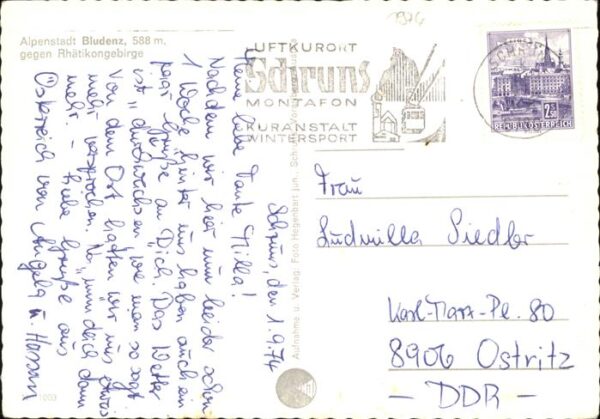 1974
Alpenstadt Bludenz, 588 m,
gegen Rhätikongebirge
LUFTKURORT
Schruns
MONTAFON
KURANSTALT
WINTERSPORT
2.50
REPUBLIK ÖSTERREICH
Schruns, den 1.9.74
Meine liebe Tante Milla!
Nachdem wir hier nun leider schon
1 Woche hinter uns haben auch ein
paar Grüße an Dich. Das Wetter
ist "durchwachsen" wie man so sagt
Von dem Ort hatten wir uns etwas
mehr versprochen. Na, nun dich dann
mehr. - Liebe Grüße aus
Österreich von Angela u.
Aufnahme u. Verlag: Foto Hegenbart jun., Schruns
1003
Frau
Ludmilla Siedler
Karl-Marx-Pl. 80
8906 Ostritz
- DDR -